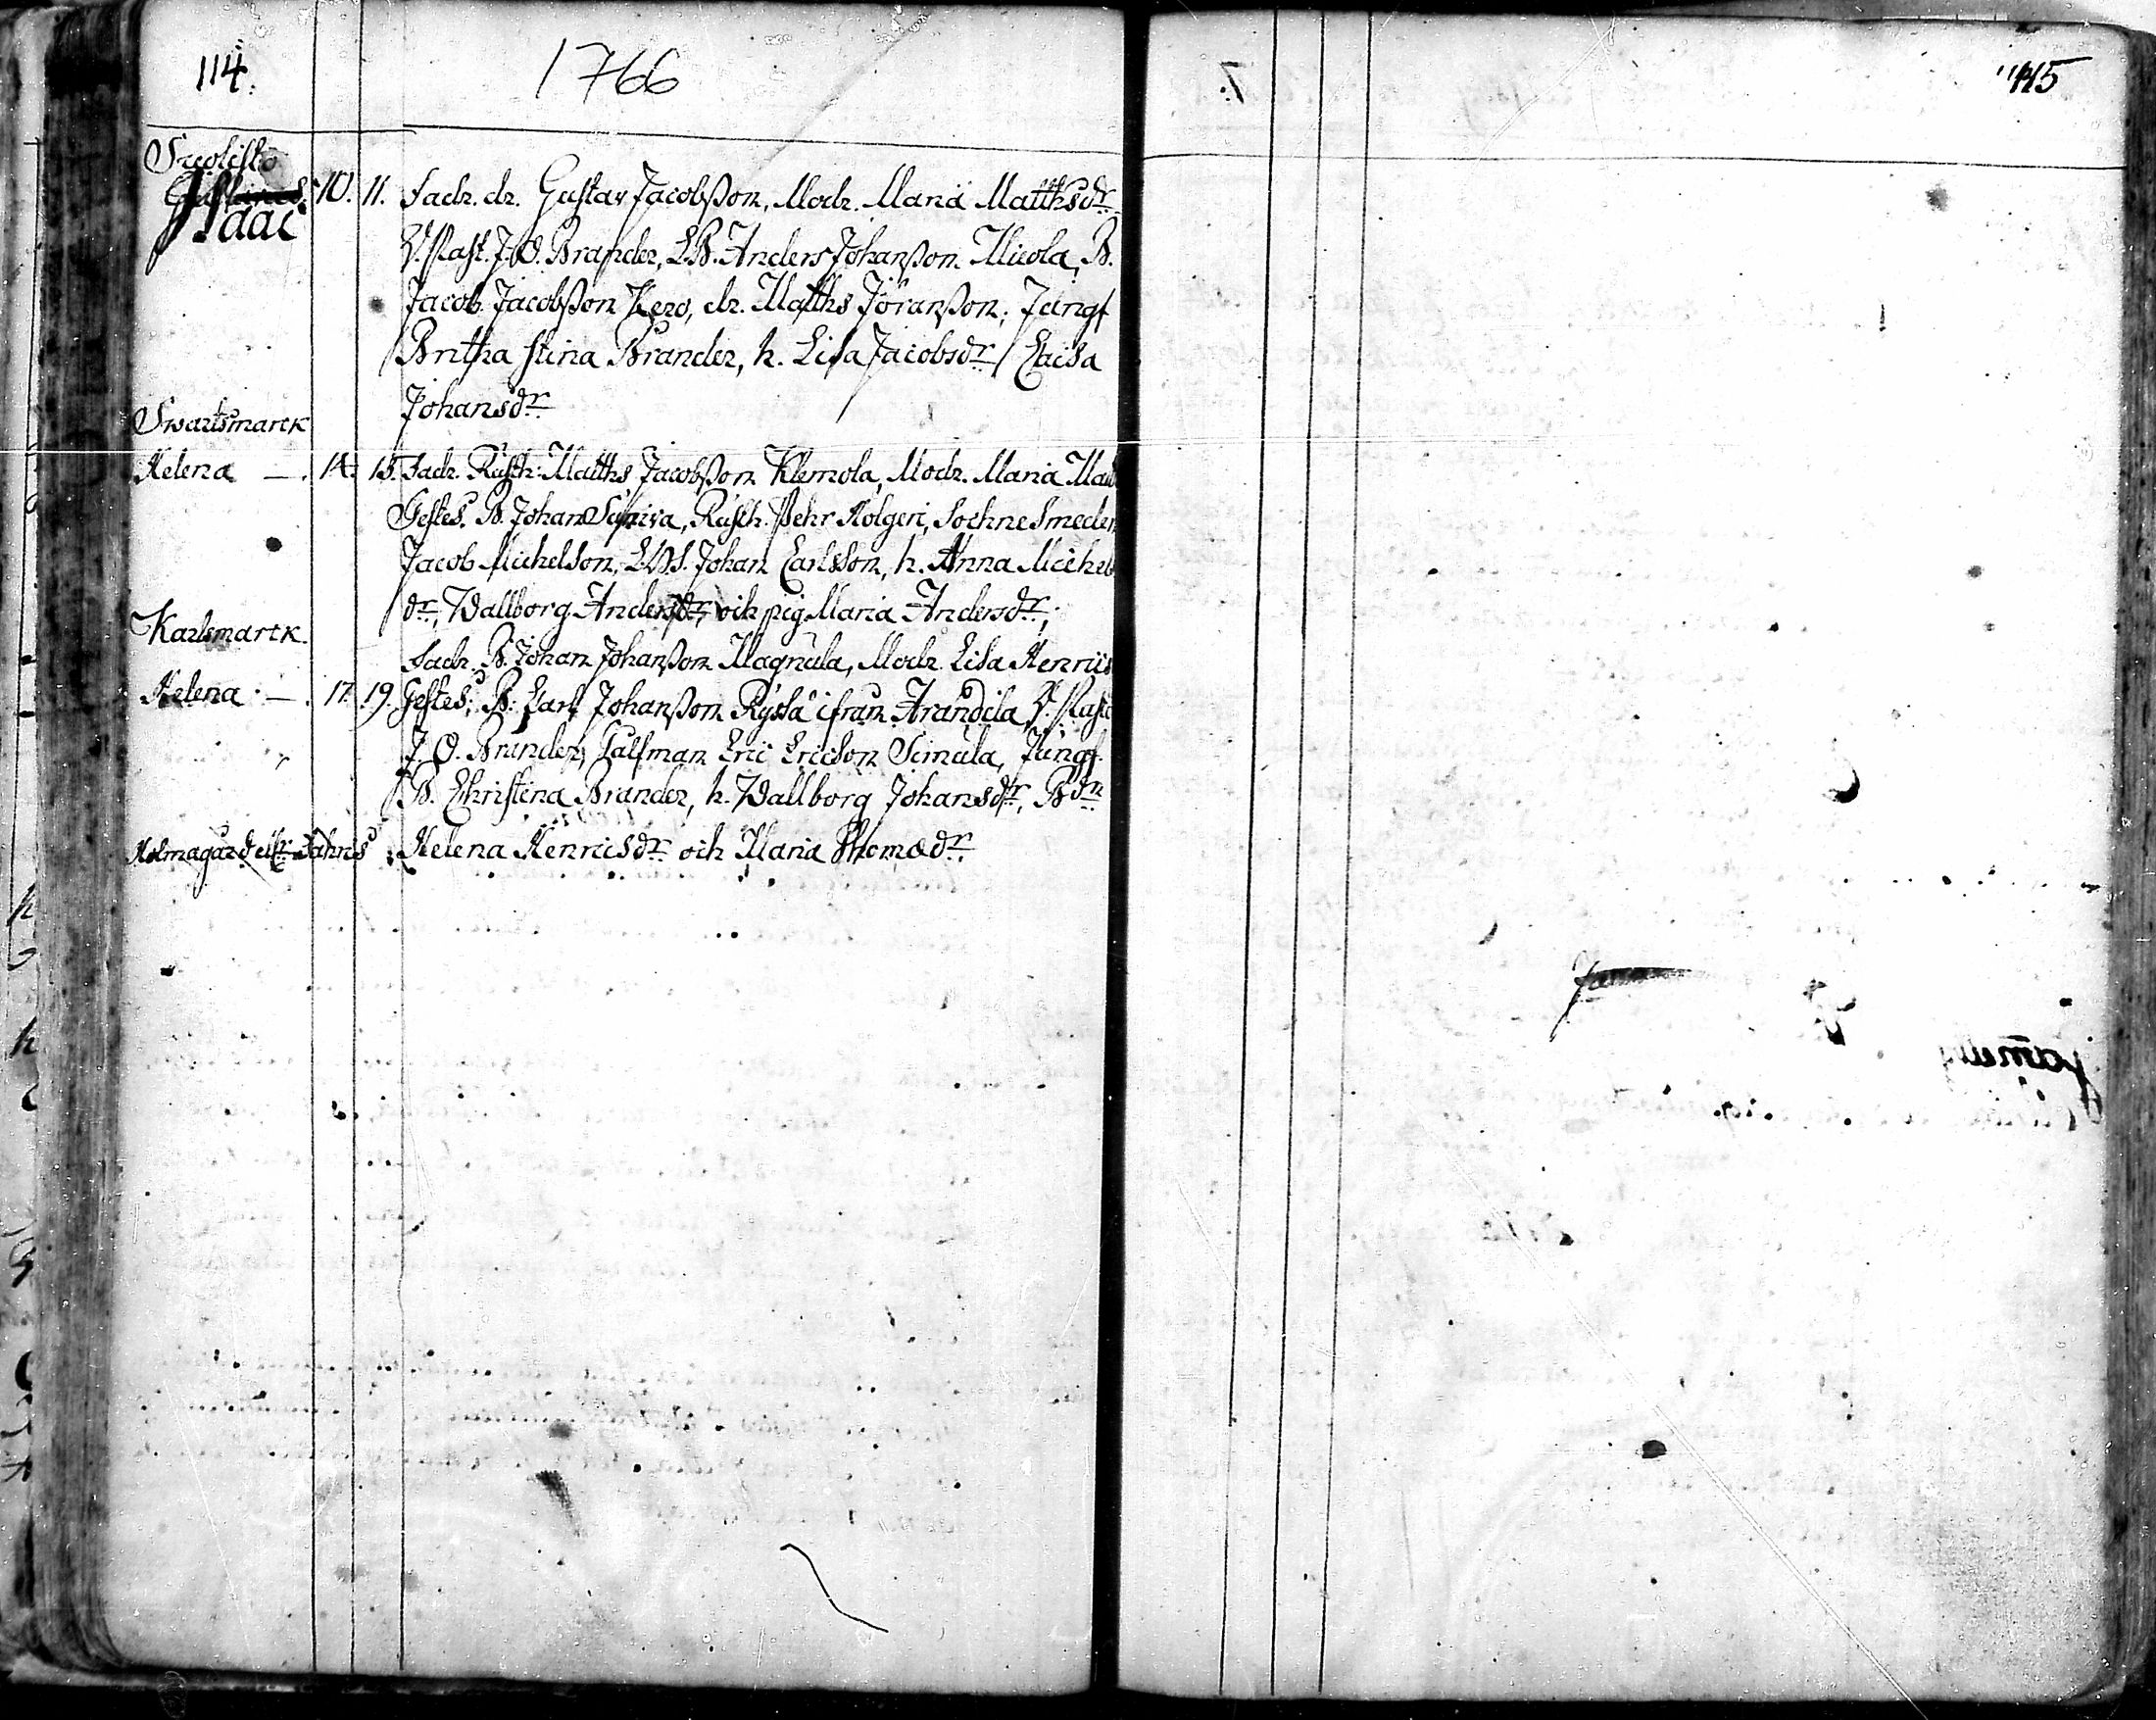 114.
1766
115
Isaac 10. 11. Fadr. dr. Gustav Jacobsson, Modr. Maria Matthsdr.
V. Past. J. O. Brander, LB. Anders Johansson Micola, B.
Jacob Jacobsson Kero, dr. Matths Joransson, Jungf
Britha Stina Brander, h. Lisa Jacobsdr Caisa
Johansdr
Swartsmarck
Helena —. 14. 15. Fadr. Rusth: Matths Jacobsson Klemola, Modr. Maria
Testes. B. Johan Rusth. Pehr Kolgeri, Sochne Smeden
Jacob Michelson, Johan Carlsson, h. Anna Michels
dr, Wallborg Andersdr, och pig Maria Andersdr,
Karlsmarck.
Fadr. B. Johan Johansson Magnula, Modr. Lisa Henrics
Helena. —. 17. 19. Testes; B: Carl Johansson Ryssä ifrån Arandila V. Past
J. O. Brander, Eric Ericson Simula, Jungf.
B. Christina Brander, h. Wallborg Johansdr, Bdr
Helena Henricsdr och Maria Thomædr.